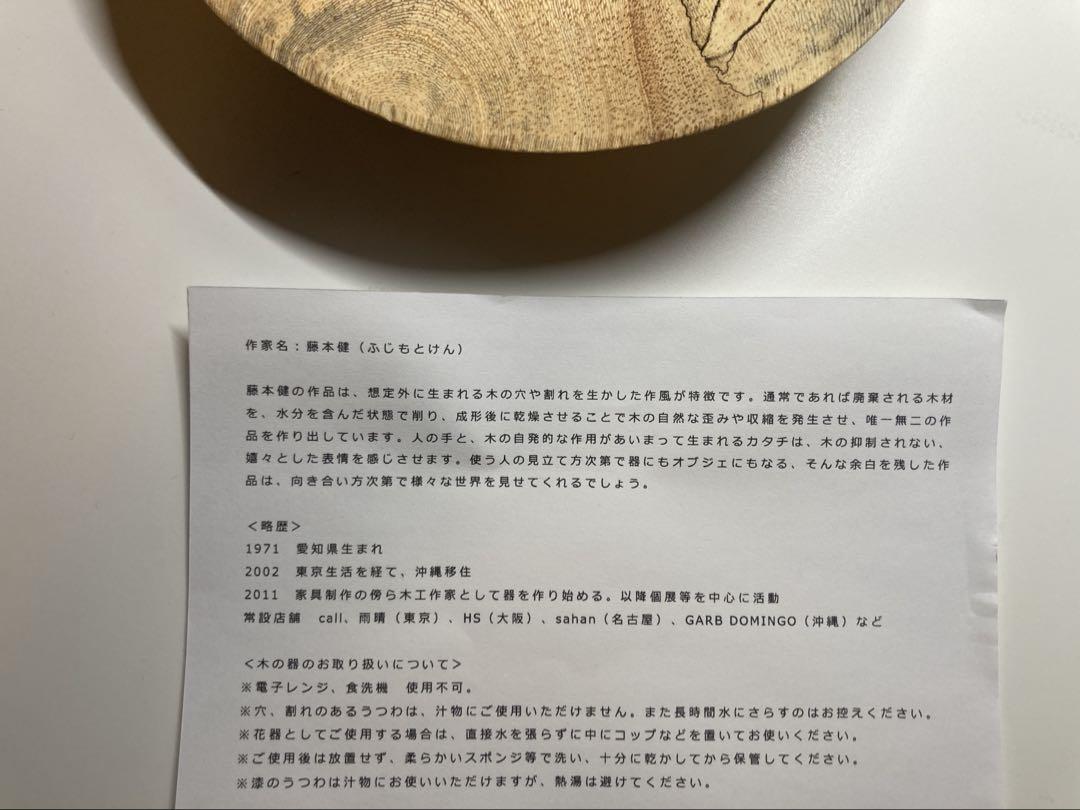 作家名：藤本健（ふじもとけん）
藤本健の作品は、想定外に生まれる木の穴や割れを生かした作風が特徴です。通常であれば廃棄される木材
を、水分を含んだ状態で削り、成形後に乾燥させることで木の自然な歪みや収縮を発生させ、唯一無二の作
品を作り出しています。人の手と、木の自発的な作用があいまって生まれるカタチは、木の抑制されない、
嬉々とした表情を感じさせます。使う人の見立て方次第で器にもオブジェにもなる、そんな余白を残した作
品は、向き合い方次第で様々な世界を見せてくれるでしょう。
＜略歴＞
1971　愛知県生まれ
2002　東京生活を経て、沖縄移住
2011　家具制作の傍ら木工作家として器を作り始める。以降個展等を中心に活動
常設店舗　call、雨晴（東京）、HS（大阪）、sahan（名古屋）、GARB DOMINGO（沖縄）など
＜木の器のお取り扱いについて＞
※電子レンジ、食洗機　使用不可。
※穴、割れのあるうつわは、汁物にご使用いただけません。また長時間水にさらすのはお控えください。
※花器としてご使用する場合は、直接水を張らずに中にコップなどを置いてお使いください。
※ご使用後は放置せず、柔らかいスポンジ等で洗い、十分に乾かしてから保管してください。
※漆のうつわは汁物にお使いいただけますが、熱湯は避けてください。